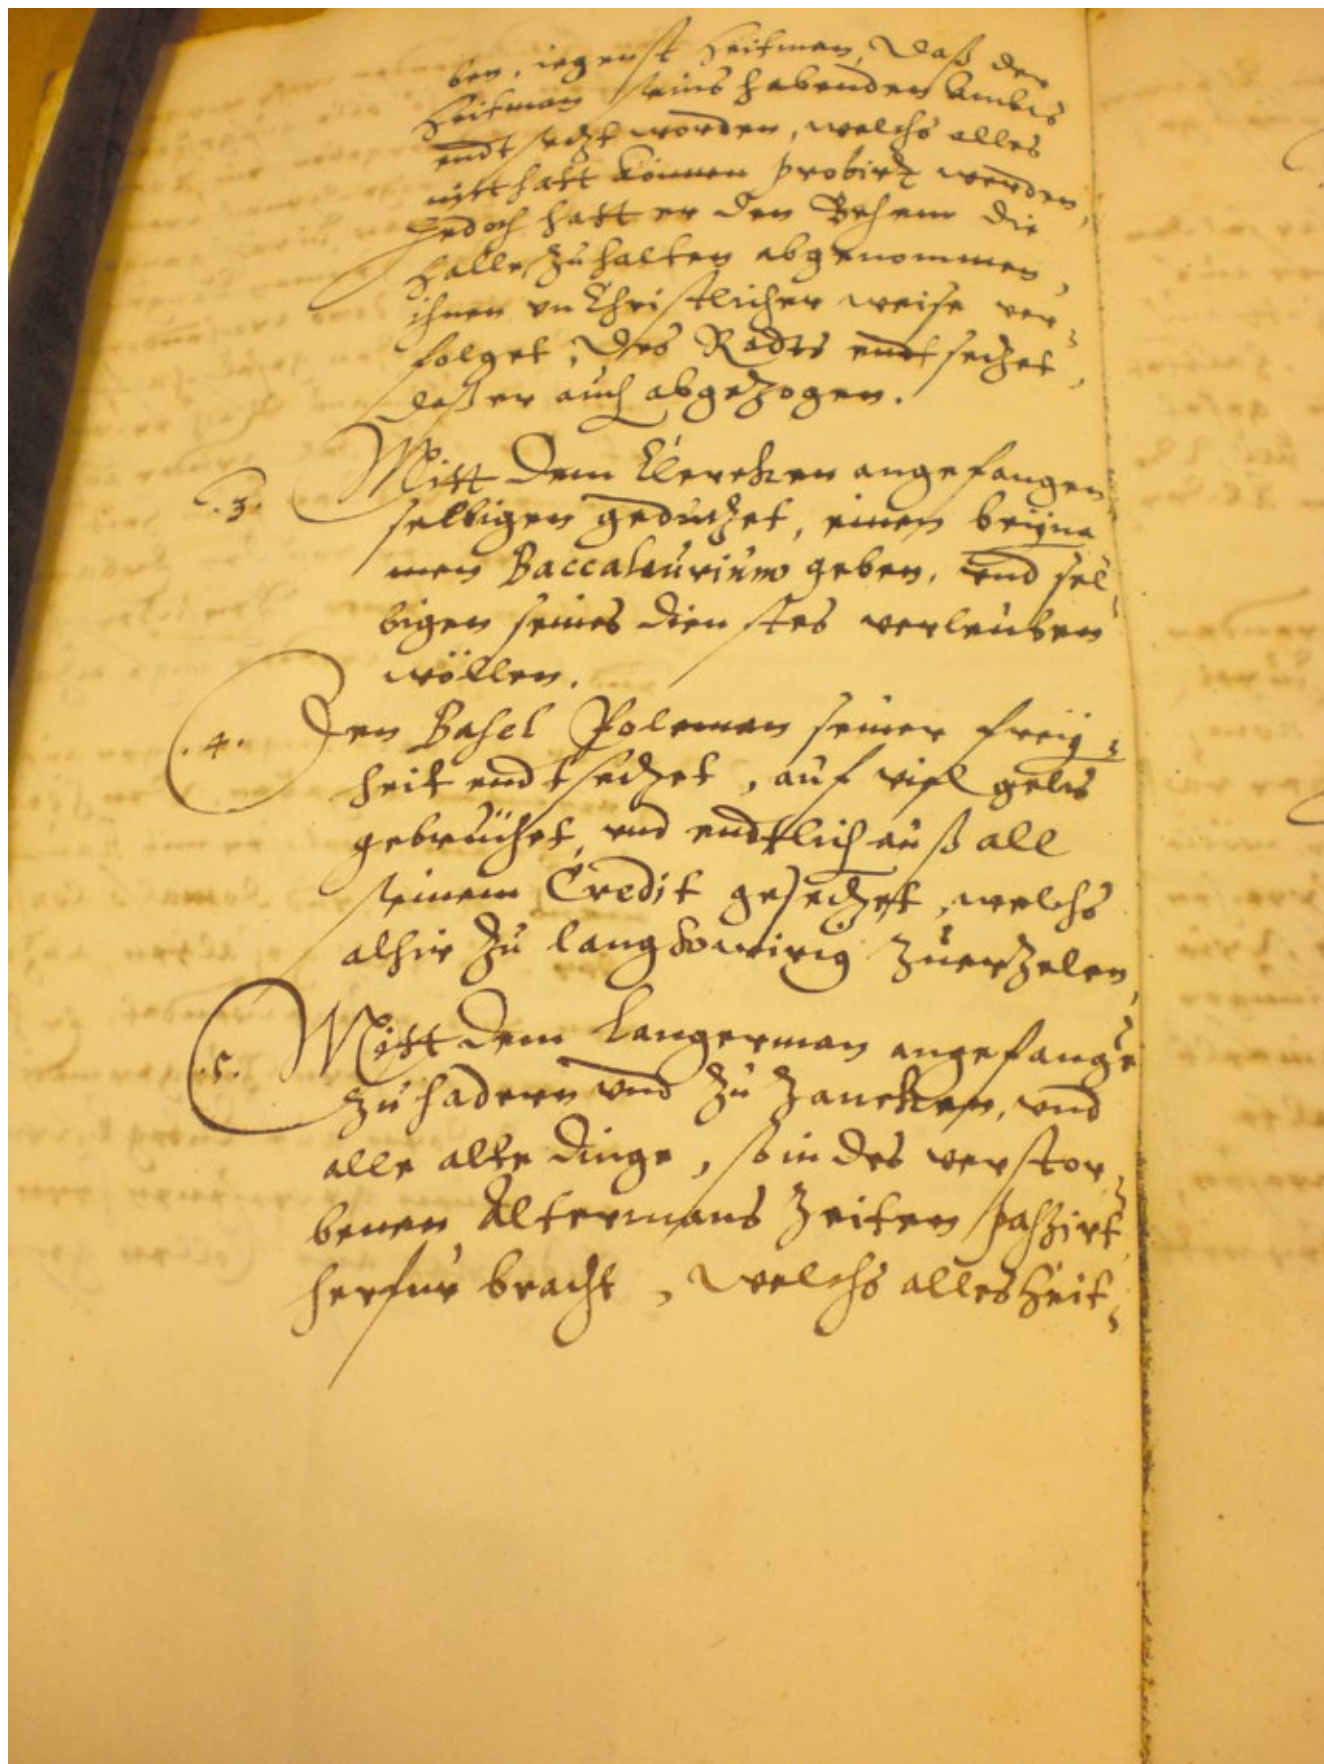 ben, iegenst Heitman, daß der
Heitman seins habenden Ambts
endtsedzt worden, welchs alles
nitt hatt können probirt werden,
Jedoch hatt er den Behem die
Halle zu halten abgenommen,
ihnen vn Christlicher weise ver-
folget, des Radts endtsedzet,
daß er auch abgezogen.
.3. Mitt dem Clercken angefangen
selbigen gedudzet, einen beÿna
men Baccalaurium geben, vnd sel-
bigen seines dienstes verleuben
wöllen.
.4. Den Basel Poleman seiner freÿ-
heit endtsedzet, auf viel gelts
gebrüchet, vnd endtlich auß all
seinem Credit gesedzet, welchs
alhir zu langkwirig zuerzelen,
.5. Mitt dem Langerman angefang
zu hadern vnd zu zancken, vnd
alle alte dinge, so in des verstor-
benen Altermans Zeiten paßirt
herfur bracht, welchs alles Heit-